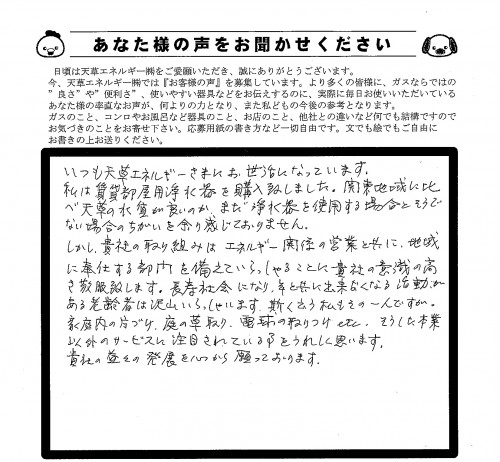 あなた様の声をお聞かせください
日頃は天草エネルギー㈱をご愛願いただき、誠にありがとうございます。
今、天草エネルギー㈱では『お客様の声』を募集しています。より多くの皆様に、ガスならではの
”良さ”や”便利さ”、使いやすい器具などをお伝えするのに、実際に毎日お使いいただいている
あなた様の率直なお声が、何よりの力となり、また私どもの今後の参考となります。
ガスのこと、コンロやお風呂など器具のこと、お店のこと、他社との違いなど何でも結構ですので
お気づきのことをお寄せ下さい。応募用紙の書き方など一切自由です。文でも絵でもご自由に
お書きの上お送りください。
いつも天草エネルギーさまにお世話になっています。
私は賃貸部屋用浄水器を購入致しました。関東地域に比
べ天草の水質が良いのか、まだ浄水器を使用する場合とそうで
ない場合のちがいを余り感じておりません。
しかし、貴社の取り組みはエネルギー関係の営業と共に、地域
に奉仕する部門を備えていらっしゃることに貴社の意識の高
さ敬服致します。長寿社会になり、年と共に出来なくなる活動が
ある老齢者は沢山いらっしゃいます。斯く言う私もその一人ですが。
家庭内の片づけ、庭の草取り、電球の取りつけ etc. そうした本業
以外のサービスに注目されている事をうれしく思います。
貴社の益々の発展を心から願っております。